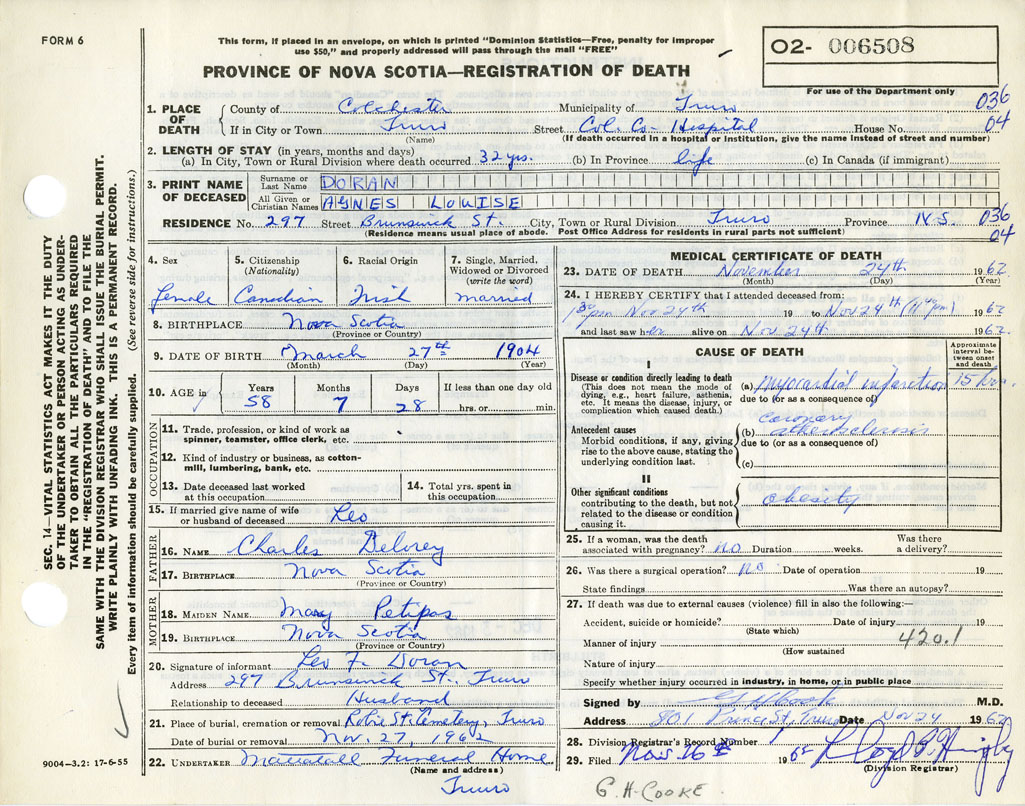 FORM 6
This form, if placed in an envelope, on which is printed "Dominion Statistics—Free, penalty for improper
use $50," and properly addressed will pass through the mail "FREE"
PROVINCE OF NOVA SCOTIA—REGISTRATION OF DEATH
02- 006508
For use of the Department only
036
04
1. PLACE OF DEATH County of Colchester Municipality of Truro
If in City or Town Truro Street Col. Co- Hospital House No.
(Name) (If death occurred in a hospital or institution, give the name instead of street and number)
2. LENGTH OF STAY (in years, months and days)
(a) In City, Town or Rural Division where death occurred 32 yrs. (b) In Province life (c) In Canada (if immigrant)
3. PRINT NAME OF DECEASED Surname or Last Name DORAN
All Given or Christian Names AGNES LOUISE
RESIDENCE No. 297 Street Brunswick St. City, Town or Rural Division Truro Province N.S. 036
(Residence means usual place of abode. Post Office Address for residents in rural parts not sufficient) 04
4. Sex
female
5. Citizenship (Nationality)
Canadian
6. Racial Origin
Irish
7. Single, Married, Widowed or Divorced (write the word)
married
8. BIRTHPLACE Nova Scotia
(Province or Country)
9. DATE OF BIRTH March 27th 1904
(Month) (Day) (Year)
10. AGE in Years 58 Months 7 Days 28 If less than one day old hrs. or min.
OCCUPATION
11. Trade, profession, or kind of work as spinner, teamster, office clerk, etc.
12. Kind of industry or business, as cotton-mill, lumbering, bank, etc.
13. Date deceased last worked at this occupation
14. Total yrs. spent in this occupation
15. If married give name of wife or husband of deceased Leo
FATHER
16. NAME Charles Delorey
17. BIRTHPLACE Nova Scotia
(Province or Country)
MOTHER
18. MAIDEN NAME Mary Petipas
19. BIRTHPLACE Nova Scotia
(Province or Country)
20. Signature of informant Leo F. Doran
Address 297 Brunswick St., Truro
Relationship to deceased Husband
21. Place of burial, cremation or removal Robie St. Cemetery, Truro
Date of burial or removal Nov. 27, 1962
22. UNDERTAKER Mattatall Funeral Home
(Name and address)
Truro
MEDICAL CERTIFICATE OF DEATH
23. DATE OF DEATH November 24th 1962
(Month) (Day) (Year)
24. I HEREBY CERTIFY that I attended deceased from:
pm Nov 24th 19 to Nov 24th 1962
and last saw her alive on Nov 24th 1962.
CAUSE OF DEATH
Approximate interval between onset and death
I
Disease or condition directly leading to death
(This does not mean the mode of dying, e.g., heart failure, asthenia, etc. It means the disease, injury, or complication which caused death.)
(a) myocardial infarction 15 hrs.
due to (or as a consequence of)
Antecedent causes
Morbid conditions, if any, giving rise to the above cause, stating the underlying condition last.
(b) coronary atherosclerosis
due to (or as a consequence of)
(c)
II
Other significant conditions
contributing to the death, but not related to the disease or condition causing it.
obesity
25. If a woman, was the death associated with pregnancy? no Duration weeks. Was there a delivery?
26. Was there a surgical operation? no Date of operation 19
State findings Was there an autopsy?
27. If death was due to external causes (violence) fill in also the following:—
Accident, suicide or homicide? Date of injury 19
(State which)
Manner of injury 420.1
(How sustained
Nature of injury
Specify whether injury occurred in industry, in home, or in public place
Signed by G H Cook M.D.
Address 801 Prince St, Truro Date Nov 24 1962
28. Division Registrar's Record Number
29. Filed Nov. 26th 196
(Division Registrar)
G. H. COOKE
SEC. 14—VITAL STATISTICS ACT MAKES IT THE DUTY
OF THE UNDERTAKER OR PERSON ACTING AS UNDER-
TAKER TO OBTAIN ALL THE PARTICULARS REQUIRED
IN THE "REGISTRATION OF DEATH" AND TO FILE THE
SAME WITH THE DIVISION REGISTRAR WHO SHALL ISSUE THE BURIAL PERMIT.
WRITE PLAINLY WITH UNFADING INK. THIS IS A PERMANENT RECORD.
Every item of information should be carefully supplied. (See reverse side for instructions.)
9004-3.2: 17-6-55